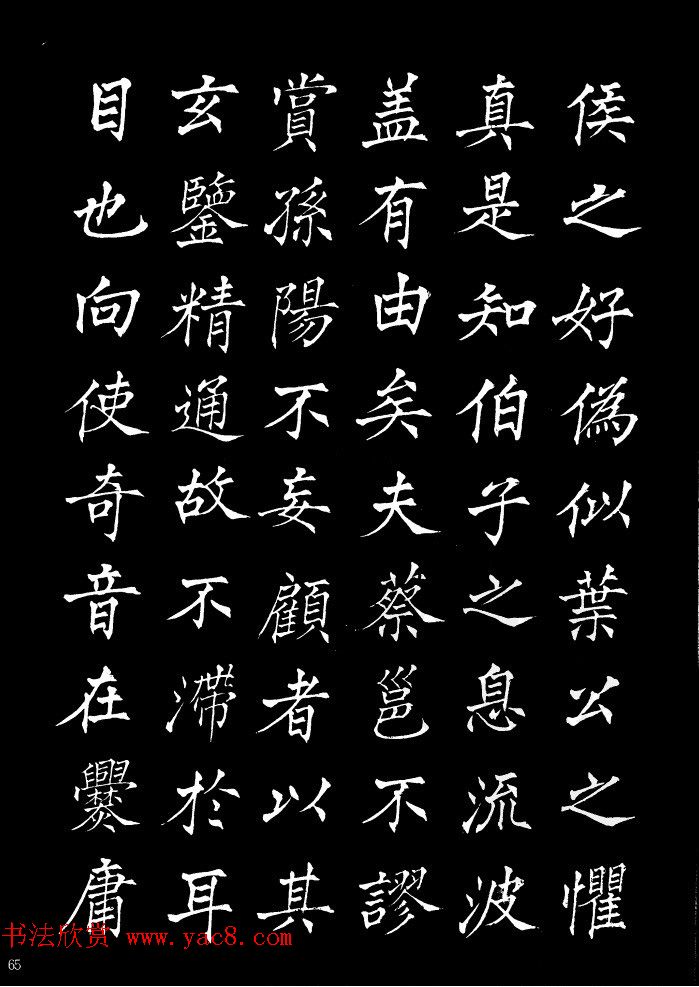 侯之好偽似葉公之懼
真是知伯子之息流波
盖有由矣夫蔡邕不謬
賞孫陽不妄顧者以其
玄鑒精通故不滯於耳
目也向使奇音在爨庸
书法欣赏 www.yac8.com
65